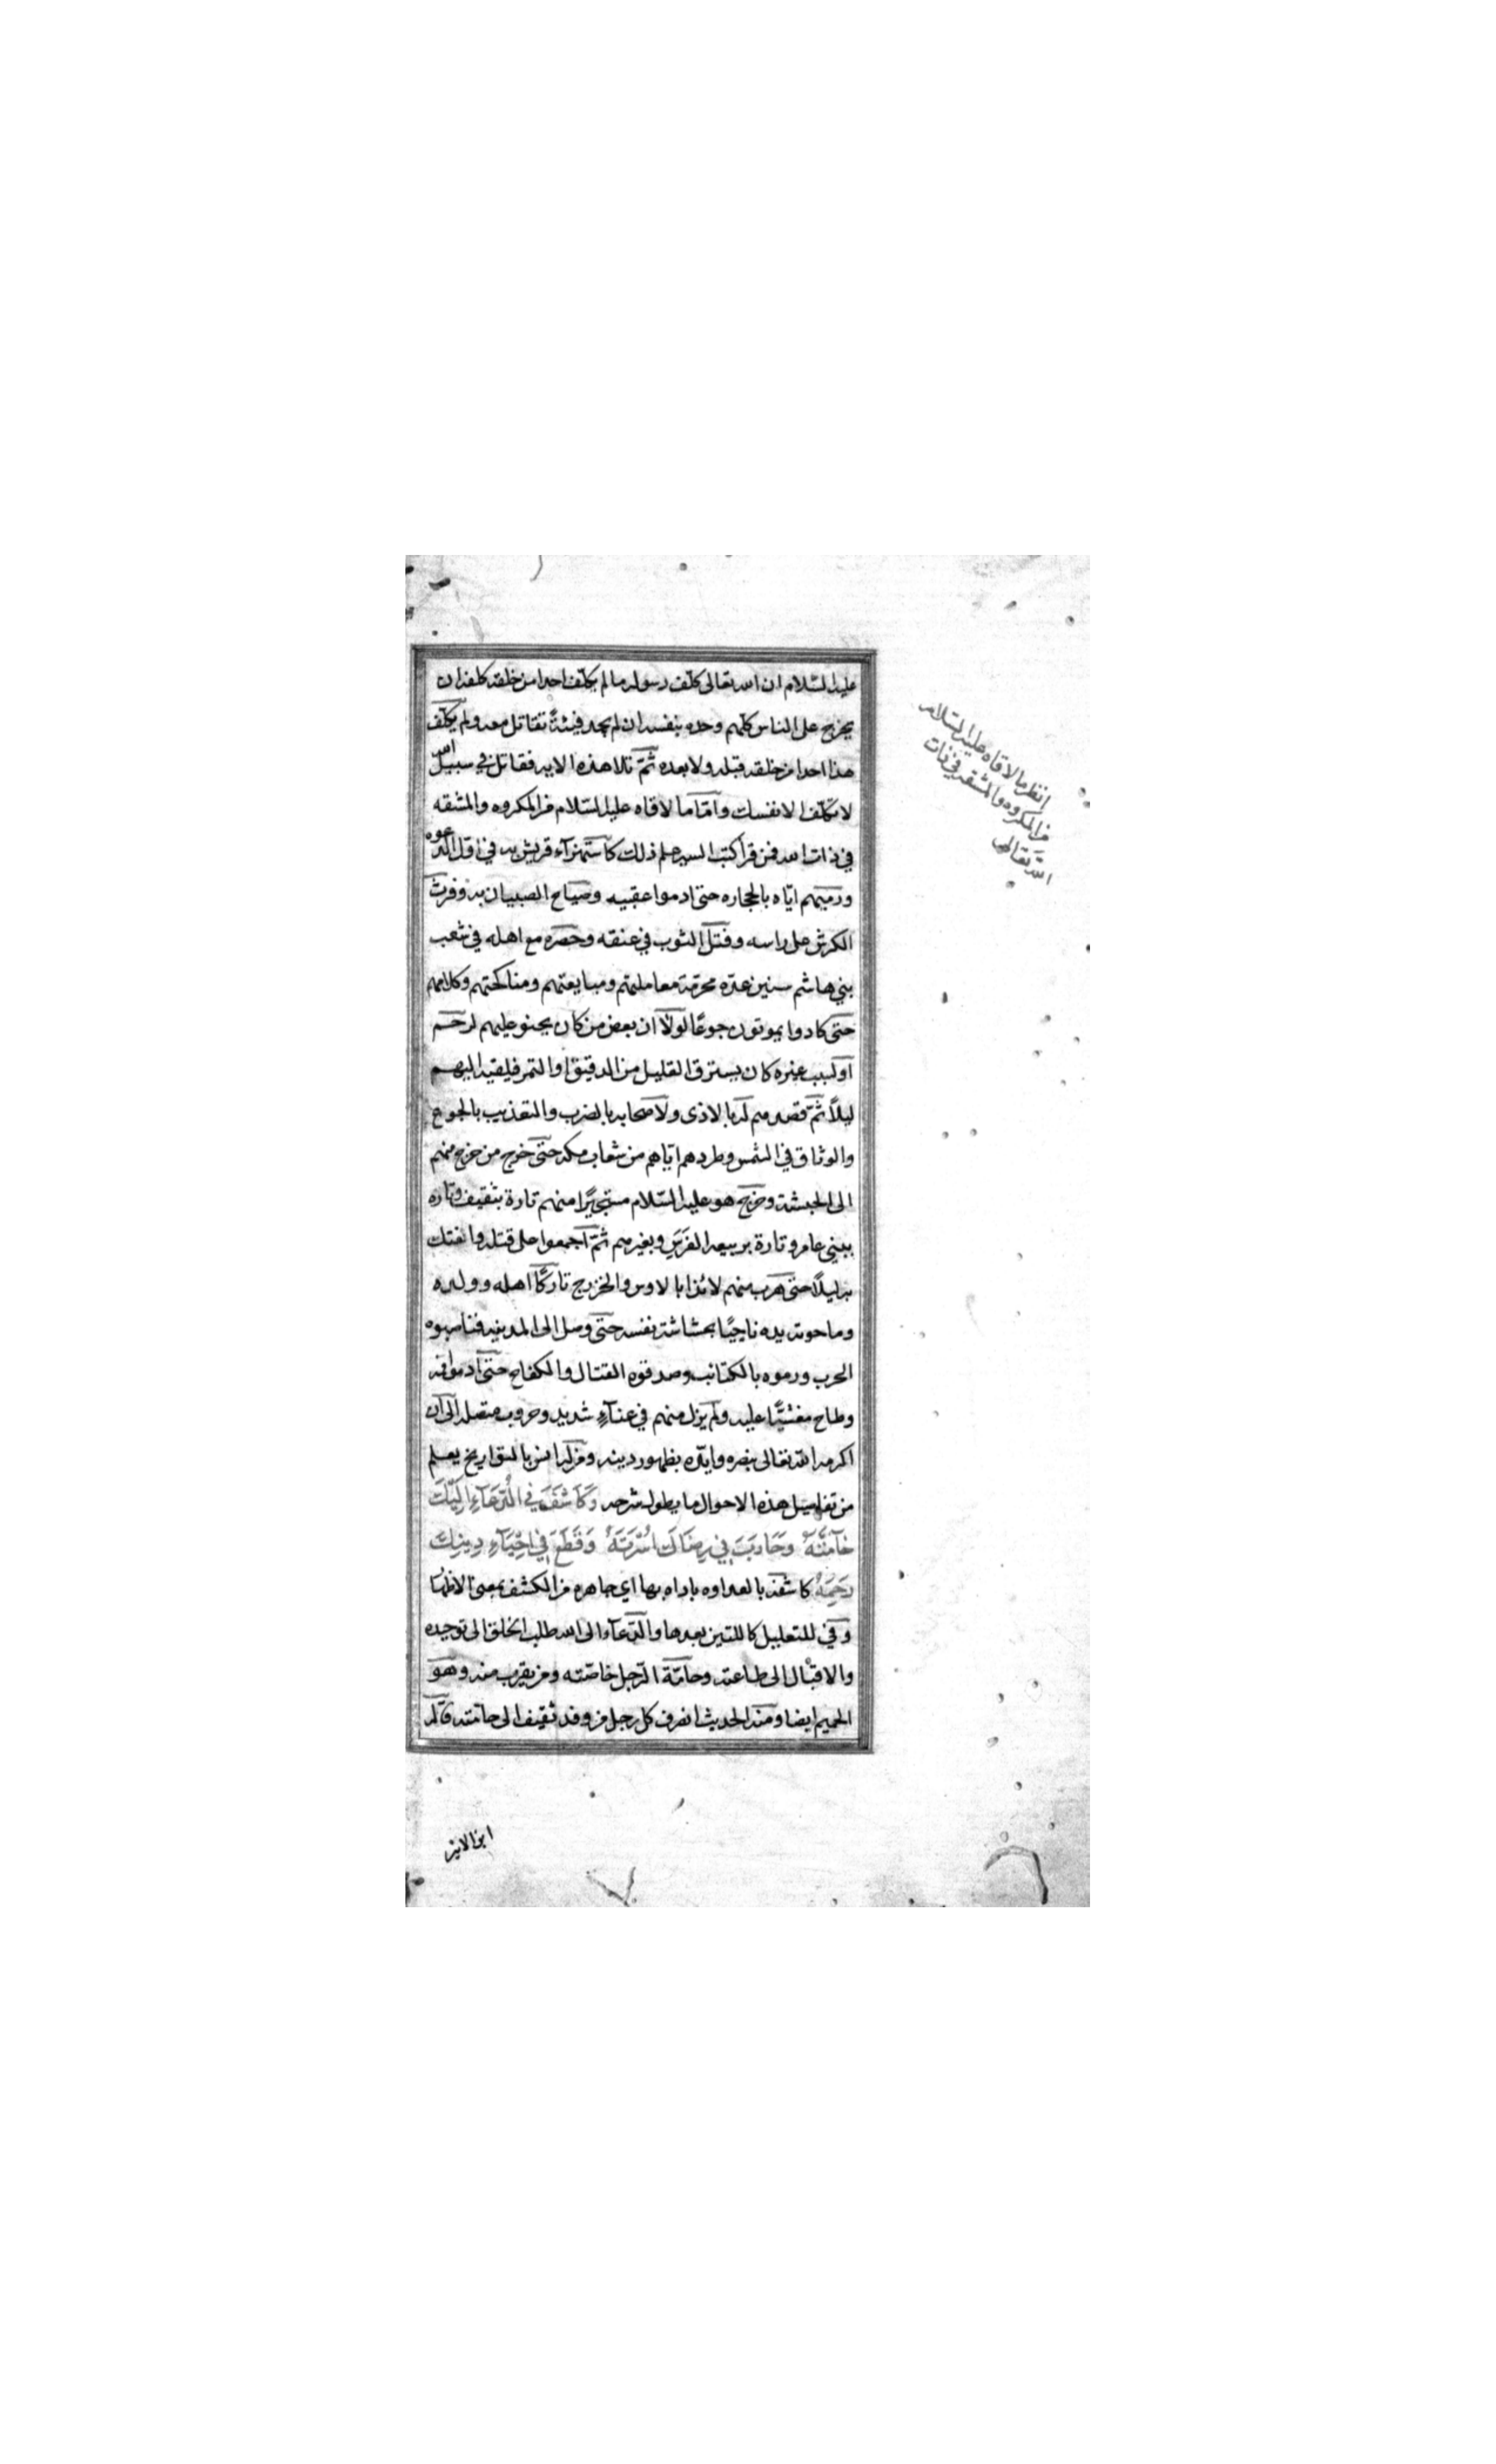 عليه السلام ان الله تعالى كلّف رسوله مالم يكلّف احدا من خلقه كلفه ان
يخرج على الناس كلّهم وحده بنفسه ان لم يجد فيئةً تقاتل معه ولم يكلّف
هذا احدا من خلقه قبله ولا بعده ثمّ تلا هذه الايه فقاتل في سبيل الله
لا تكلّف الا نفسك وامّا ما لاقاه عليه السّلام من المكروه والمشقه
في ذات الله فمن قرأ كتب السير علم ذلك كاستهزآء قريش به في اوّل الدعوه
ورميهم ايّاه بالحجاره حتى ادموا عقبيه وصياح الصبيان به وفرث
الكرش على راسه وفتل الثوب في عنقه وحصره مع اهله في شعب
بني هاشم سنين عدّه محرّمة معاملتهم ومبايعتهم ومناكحتهم وكلامهم
حتى كادوا يموتون جوعًا لولا ان بعض من كان يحنو عليهم لرحم
او لسبب غيره كان يسترق القليل من الدقيق او التمر فيلقيه اليهم
ليلًا ثمّ قصدهم له بالاذى ولاصحابه بالضرب والتعذيب بالجوع
والوثاق في الشمس وطردهم ايّاهم من شعاب مكه حتى خرج من خرج منهم
الى الحبشه وخرج هو عليه السّلام مستجيرًا منهم تارة بثقيف وتاره
ببني عامر وتارة بربيعه الفرس وبغيرهم ثمّ اجمعوا على قتله والفتك
به ليلًا حتى هرب منهم لائذا بالاوس والخزرج تاركًا اهله وولده
وما حوته يده ناجيًا بحشاشة نفسه حتى وصل الى المدينه فناصبوه
الحرب ورموه بالكتائب وصدقوه القتال والكفاح حتى ادموا فمه
وطاح مغشيًّا عليه ولم يزل منهم في عنآءٍ شديد وحروب متصله الى ان
اكرمه الله تعالى بنصره وايّده بظهور دينه ومن له انس بالتواريخ يعلم
من تفاصيل هذه الاحوال ما يطول شرحه وَكَاشَفَ فِي الدُّعَآءِ اِلَيْكَ
حَآمَّتَهُ وَحَارَبَ فِي رِضَاكَ اُسْرَتَهُ وَقَطَعَ فِي اِحْيَآءِ دِينِكَ
رَحِمَهُ كاشفه بالعداوه باداه بها اي جاهره من الكشف بمعنى الاظهار
وفي للتعليل كاللتين بعدها والدّعآء الى الله طلب الخلق الى توحيده
والاقبال الى طاعته وحامّة الرّجل خاصّته ومن يقرب منه وهو
الحميم ايضا ومنه الحديث انصرف كل رجل من وفد ثقيف الى حامّته قاله
ابن الاثير
انظر ما لاقاه عليه السّلام
من المكروه والمشقه في ذات
الله تعالى